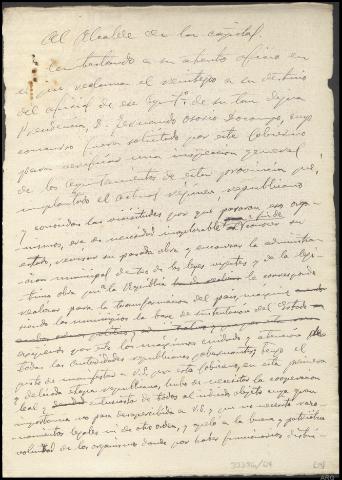 Al Alcalde de la capital.
Contestando a su atento oficio en
el que reclama el reintegro a su destino
del oficial de ese Aymtº. de su tan digna
Presidencia, D. Fernando Osorio Docampo, cuyo
concurso fuera solicitado por este Gobierno
para verificar una inspección general
de los Ayuntamientos de esta provincia que,
implantado el actual régimen republicano
y conocidas las vicisitudes por que pasaran esos orga-
nismos, era de necesidad inaplazable conocer su
estado, revisar su pasada obra y encauzar la administra-
ción municipal dentro de las leyes vigentes y de la legí-
tima obra que a la República le corresponde
realizar para la transformación del país,
siendo los municipios la base de sustentación del Estado
por ello los máximos cuidados y atención de
todas las Autoridades republicanas, gobernantes, tengo el
gusto de manifestar a V.S. que este Gobierno, en esta primera
y delicada etapa republicana, hubo de necesitar la cooperación
leal y entusiasta de todos al indicado objeto, cuya gran
importancia no pasa desapercibida a V.S., y que no necesita razo-
namientos legales ni de otro orden, y apeló a la buena y patriótica
voluntad de los organismos donde por haber funcionarios distin-